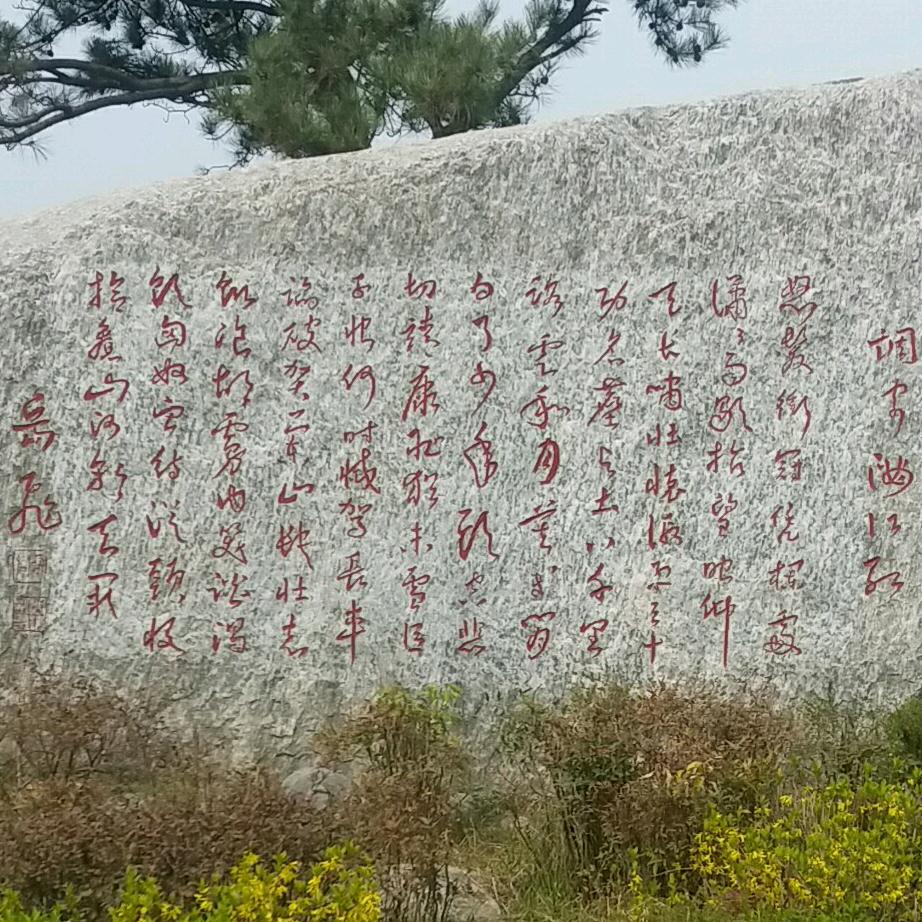 調寄滿江红
怒髮衝冠凭栏處
潇潇雨歇抬望眼仰
天长嘯壮懷激烈三十
功名塵与土八千里
路雲和月莫等閑
白了少年頭空悲
切靖康恥猶未雪臣
子恨何时滅駕長車
踏破贺兰山缺壮志
飢飡胡虜肉笑談渴
飲匈奴血待從頭收
拾舊山河朝天闕
岳飛